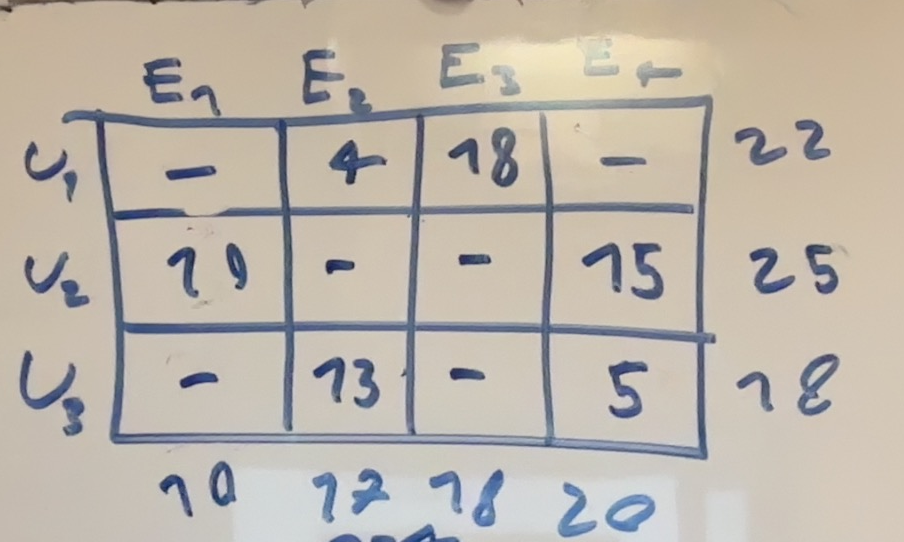 E1 E2 E3 E4
U1 - 4 18 - 22
U2 10 - - 15 25
U3 - 13 - 5 18
10 17 18 20